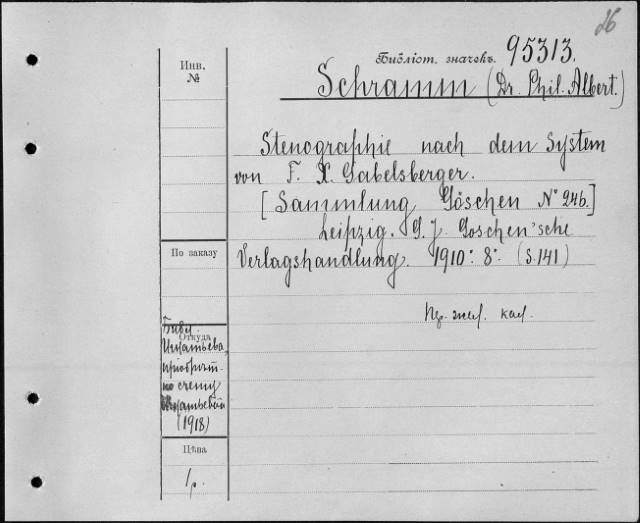 26
Библіот. значекъ. 95313.
Инв. №
Schramm (Dr. Phil. Albert.)
Stenographie nach dem System
von F. X. Gabelsberger.
[Sammlung Göschen № 246.]
Leipzig. G. J. Goschen'sche
По заказу
Verlagshandlung. 1910: 8: (S. 141)
Откуда
Игнатьева,
по счету
(1918)
Цѣна
1 р.